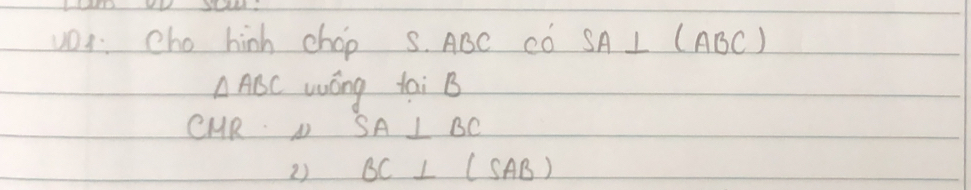 VD1: Cho hình chóp S.ABC có SA ⊥ (ABC)
Δ ABC vuông tại B
CMR 1) SA ⊥ BC
2) BC ⊥ (SAB)